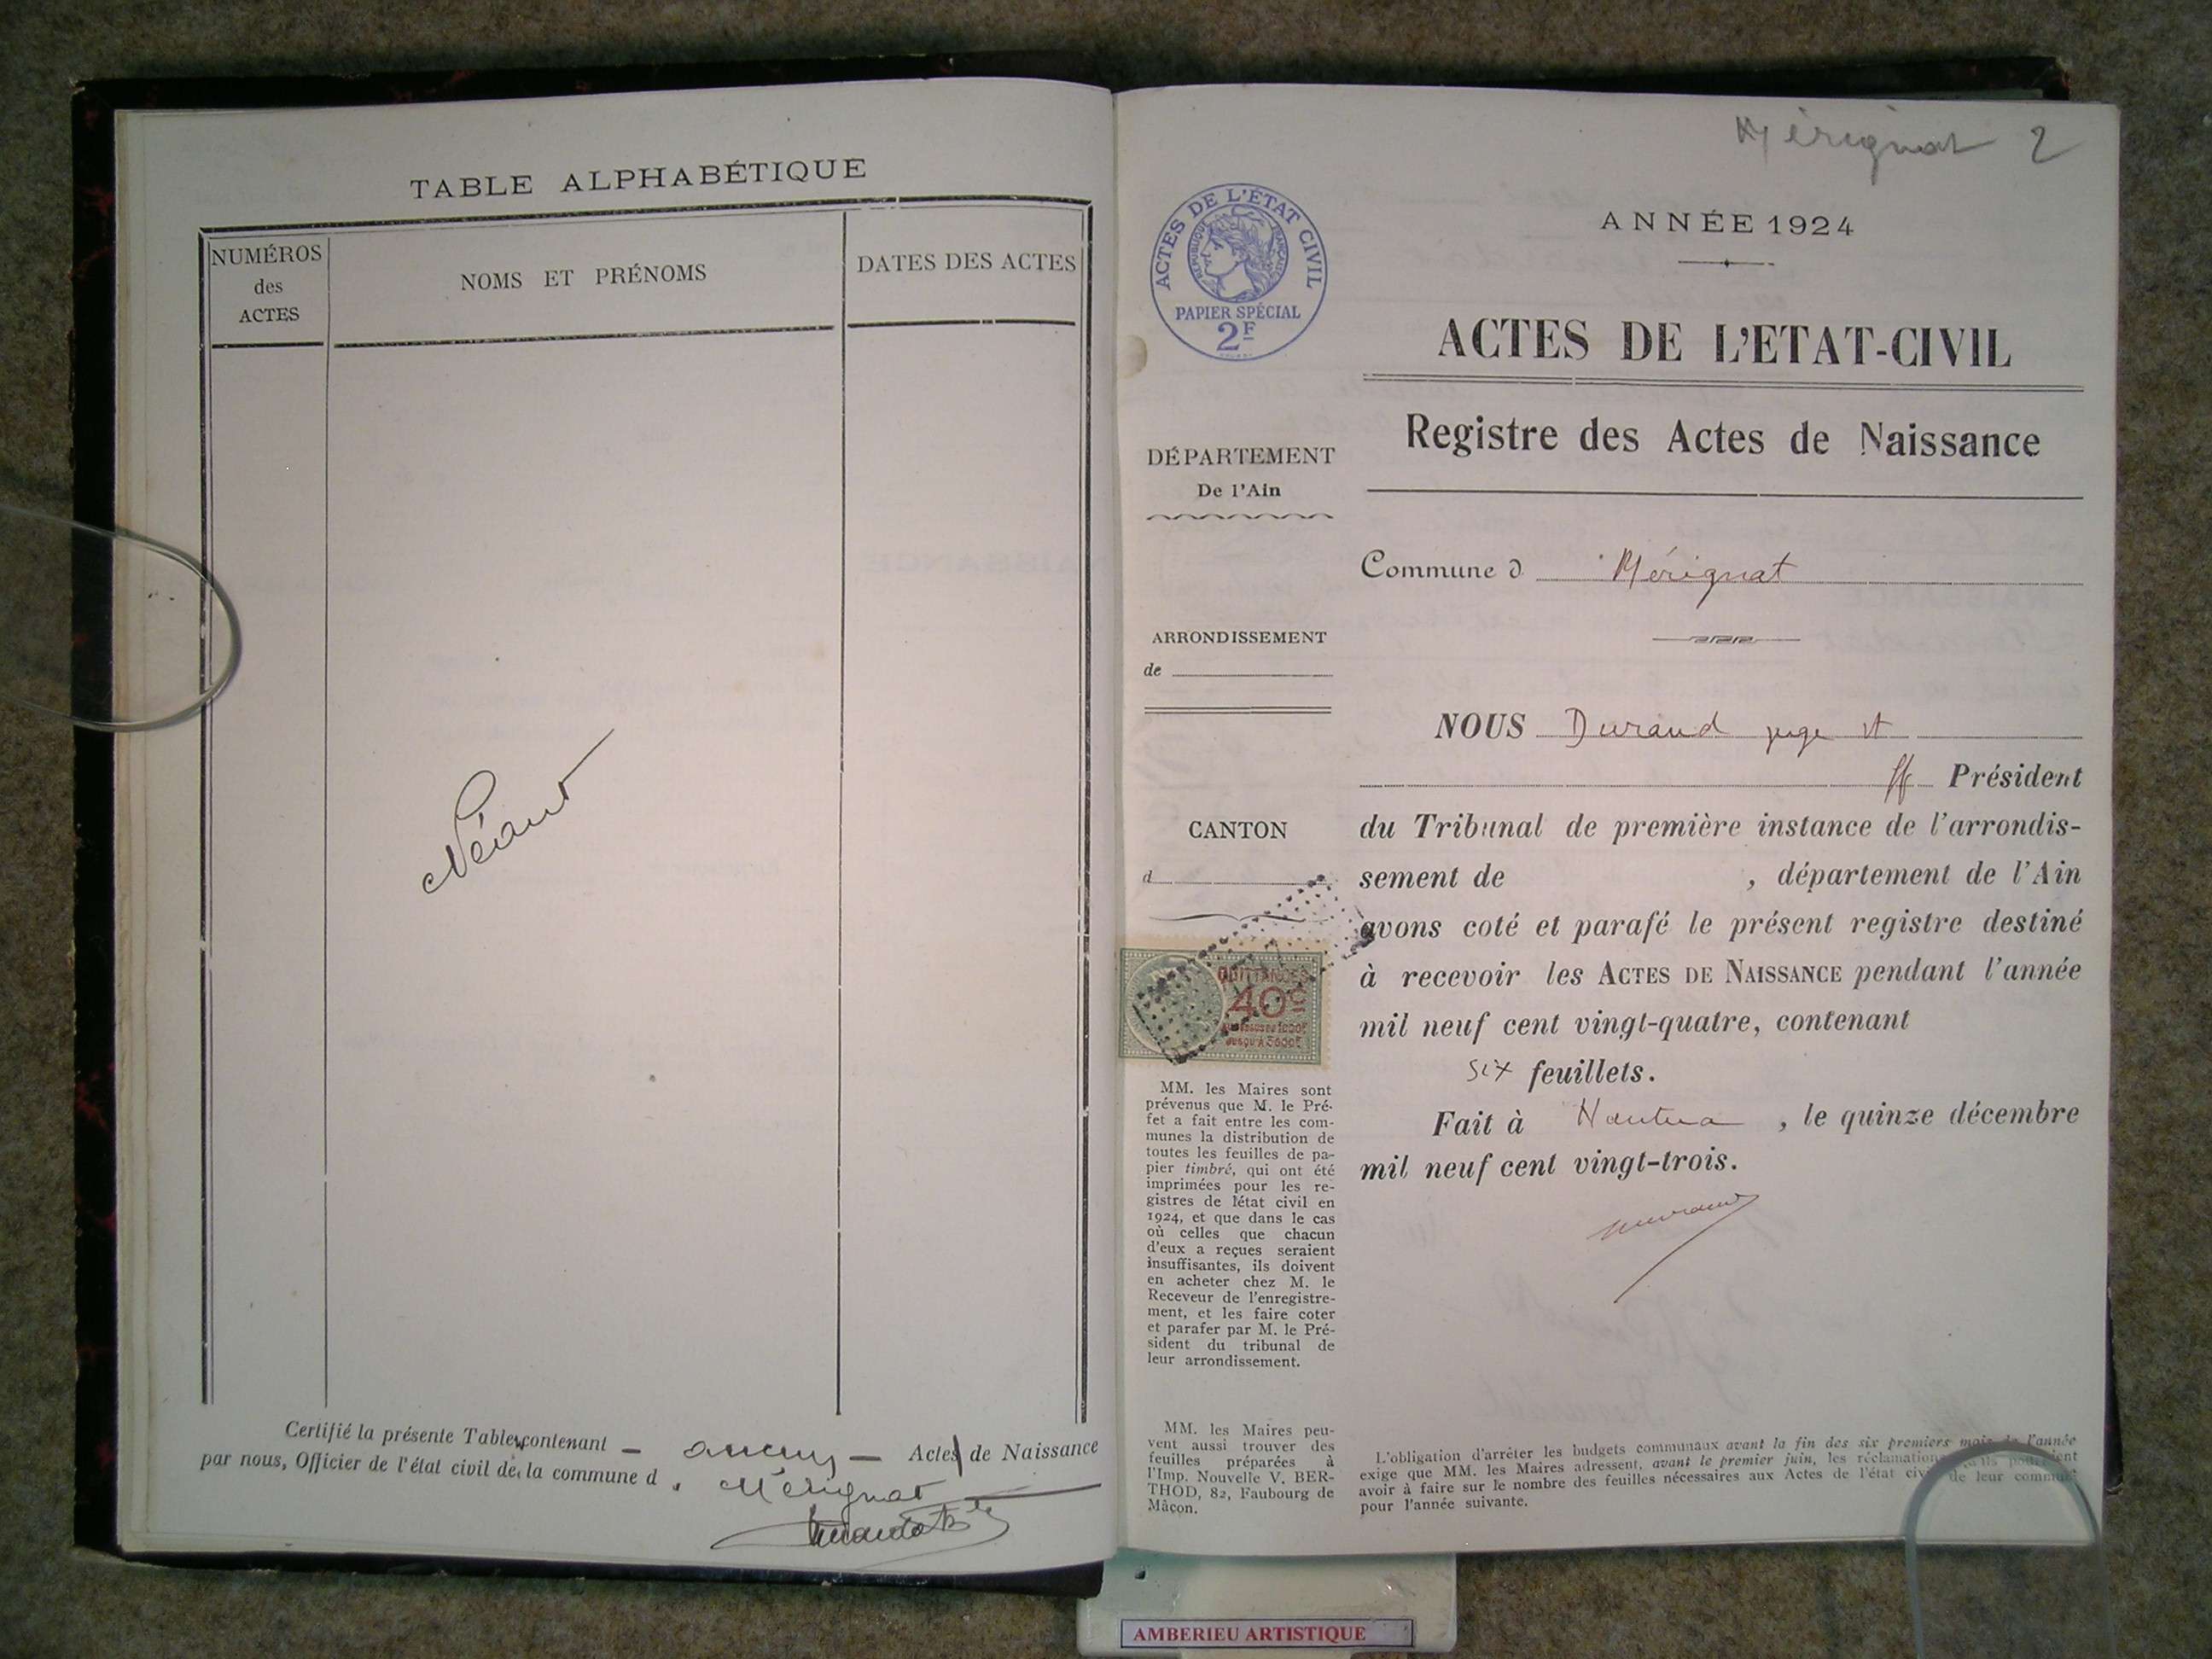 TABLE ALPHABÉTIQUE
NUMÉROS
des
ACTES
NOMS ET PRÉNOMS
DATES DES ACTES
Néant
Certifié la présente Table contenant - aucun - Acte de Naissance
par nous, Officier de l'état civil de la commune d Mérignat
Mérignat 2
ACTES DE L'ÉTAT CIVIL
RÉPUBLIQUE FRANÇAISE
PAPIER SPÉCIAL
2F
ANNÉE 1924
ACTES DE L'ETAT-CIVIL
Registre des Actes de Naissance
DÉPARTEMENT
De l'Ain
Commune d Mérignat
ARRONDISSEMENT
de
NOUS Durand juge st
ff Président
CANTON
d
du Tribunal de première instance de l'arrondis-
sement de , département de l'Ain
avons coté et parafé le présent registre destiné
à recevoir les ACTES DE NAISSANCE pendant l'année
mil neuf cent vingt-quatre, contenant
six feuillets.
Fait à Nantua , le quinze décembre
mil neuf cent vingt-trois.
QUITTANCES
40c
JUSQU'À 3000F
MM. les Maires sont
prévenus que M. le Pré-
fet a fait entre les com-
munes la distribution de
toutes les feuilles de pa-
pier timbré, qui ont été
imprimées pour les re-
gistres de l'état civil en
1924, et que dans le cas
où celles que chacun
d'eux a reçues seraient
insuffisantes, ils doivent
en acheter chez M. le
Receveur de l'enregistre-
ment, et les faire coter
et parafer par M. le Pré-
sident du tribunal de
leur arrondissement.
MM. les Maires peu-
vent aussi trouver des
feuilles préparées à
l'Imp. Nouvelle V. BER-
THOD, 82, Faubourg de
Mâcon.
L'obligation d'arrêter les budgets communaux avant la fin des six premiers mois de l'année
exige que MM. les Maires adressent, avant le premier juin, les réclamations qu'ils pourraient
avoir à faire sur le nombre des feuilles nécessaires aux Actes de l'état civil de leur commune
pour l'année suivante.
AMBERIEU ARTISTIQUE